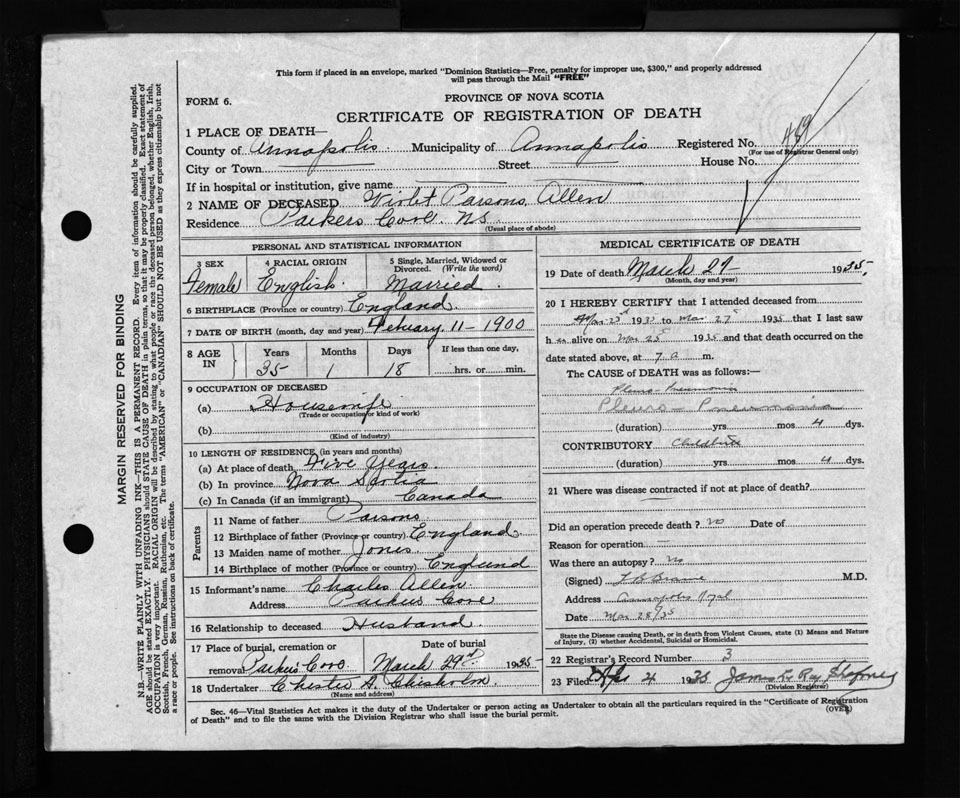 This form if placed in an envelope, marked "Dominion Statistics—Free, penalty for improper use, $300," and properly addressed
will pass through the Mail "FREE"
FORM 6.
PROVINCE OF NOVA SCOTIA
CERTIFICATE OF REGISTRATION OF DEATH
469
1 PLACE OF DEATH—
County of Annapolis Municipality of Annapolis Registered No.
(For use of Registrar General only)
City or Town Street House No.
If in hospital or institution, give name
2 NAME OF DECEASED Violet Parsons Allen
Residence Parkers Cove N.S.
(Usual place of abode)
PERSONAL AND STATISTICAL INFORMATION
3 SEX 4 RACIAL ORIGIN 5 Single, Married, Widowed or Divorced. (Write the word)
Female English Married
6 BIRTHPLACE (Province or country) England
7 DATE OF BIRTH (month, day and year) February 11-1900
8 AGE IN Years Months Days If less than one day,
35 1 18 hrs. or min.
9 OCCUPATION OF DECEASED
(a) Housewife
(Trade or occupation or kind of work)
(b)
(Kind of industry)
10 LENGTH OF RESIDENCE (in years and months)
(a) At place of death Five Years
(b) In province Nova Scotia
(c) In Canada (if an immigrant) Canada
Parents
11 Name of father Parsons
12 Birthplace of father (Province or country) England
13 Maiden name of mother Jones
14 Birthplace of mother (Province or country) England
15 Informant's name Charles Allen
Address Parkers Cove
16 Relationship to deceased Husband
17 Place of burial, cremation or Date of burial
removal Parkers Cove March 29 1935
18 Undertaker Chester A. Chisholm
(Name and address)
MEDICAL CERTIFICATE OF DEATH
19 Date of death March 29- 1935,
(Month, day and year)
20 I HEREBY CERTIFY that I attended deceased from
1935 to Mar 27 1935 that I last saw
h er alive on Mar 25 1935 and that death occurred on the
date stated above, at 7 a m.
The CAUSE of DEATH was as follows:—
Pleuro-Pneumonia
Pleuro-Pneumonia
(duration) yrs mos 4 dys.
CONTRIBUTORY Childbirth
(duration) yrs mos 4 dys.
21 Where was disease contracted if not at place of death?
Did an operation precede death? no Date of
Reason for operation —
Was there an autopsy? no
(Signed) M.D.
Address Annapolis Royal
Date Mar 28/35
State the Disease causing Death, or in death from Violent Causes, state (1) Means and Nature
of Injury, (2) whether Accidental, Suicidal or Homicidal.
22 Registrar's Record Number 3
23 Filed 4 1935 James L. Ray
(Division Registrar)
Sec. 46—Vital Statistics Act makes it the duty of the Undertaker or person acting as Undertaker to obtain all the particulars required in the "Certificate of Registration
of Death" and to file the same with the Division Registrar who shall issue the burial permit.
(OVER)
MARGIN RESERVED FOR BINDING
N.B.—WRITE PLAINLY WITH UNFADING INK—THIS IS A PERMANENT RECORD. Every item of information should be carefully supplied.
AGE should be stated EXACTLY. PHYSICIANS should STATE CAUSE OF DEATH in plain terms, so that it may be properly classified. Exact statement of
OCCUPATION is very important. RACIAL ORIGIN will be described by stating to what people or race the deceased person belonged, whether English, Irish,
Scottish, French, German, Russian, Ruthenian, etc. The terms "AMERICAN" or "CANADIAN" SHOULD NOT BE USED as they express citizenship but not
a race or people. See instructions on back of certificate.